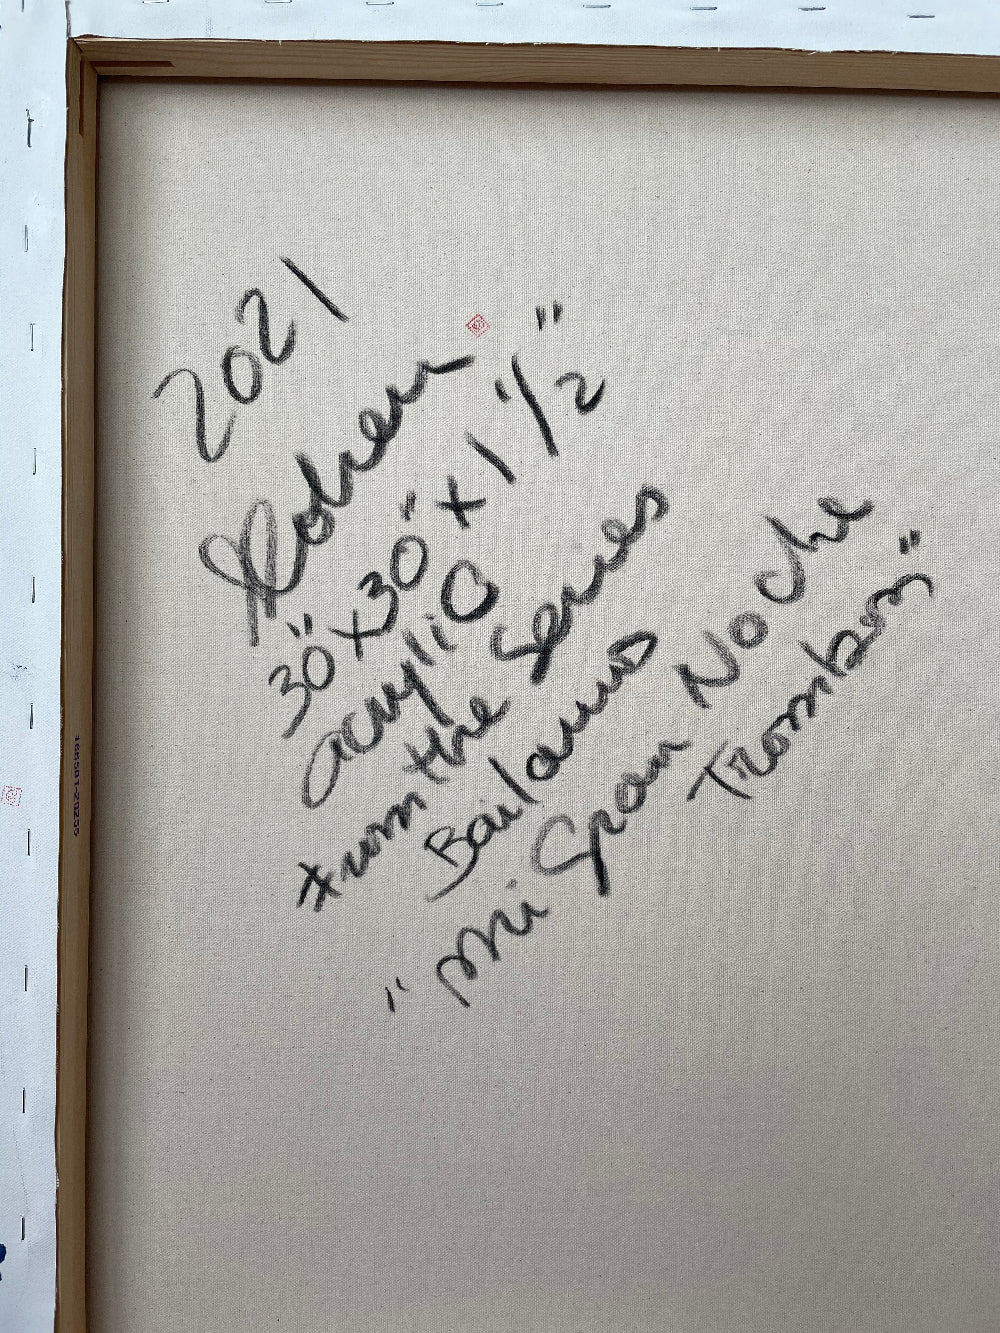 2021
30" x 30" x 1 1/2"
acrylic
from the Series
Bailamos
"mi Gran Noche
Trombon"
166501-20255